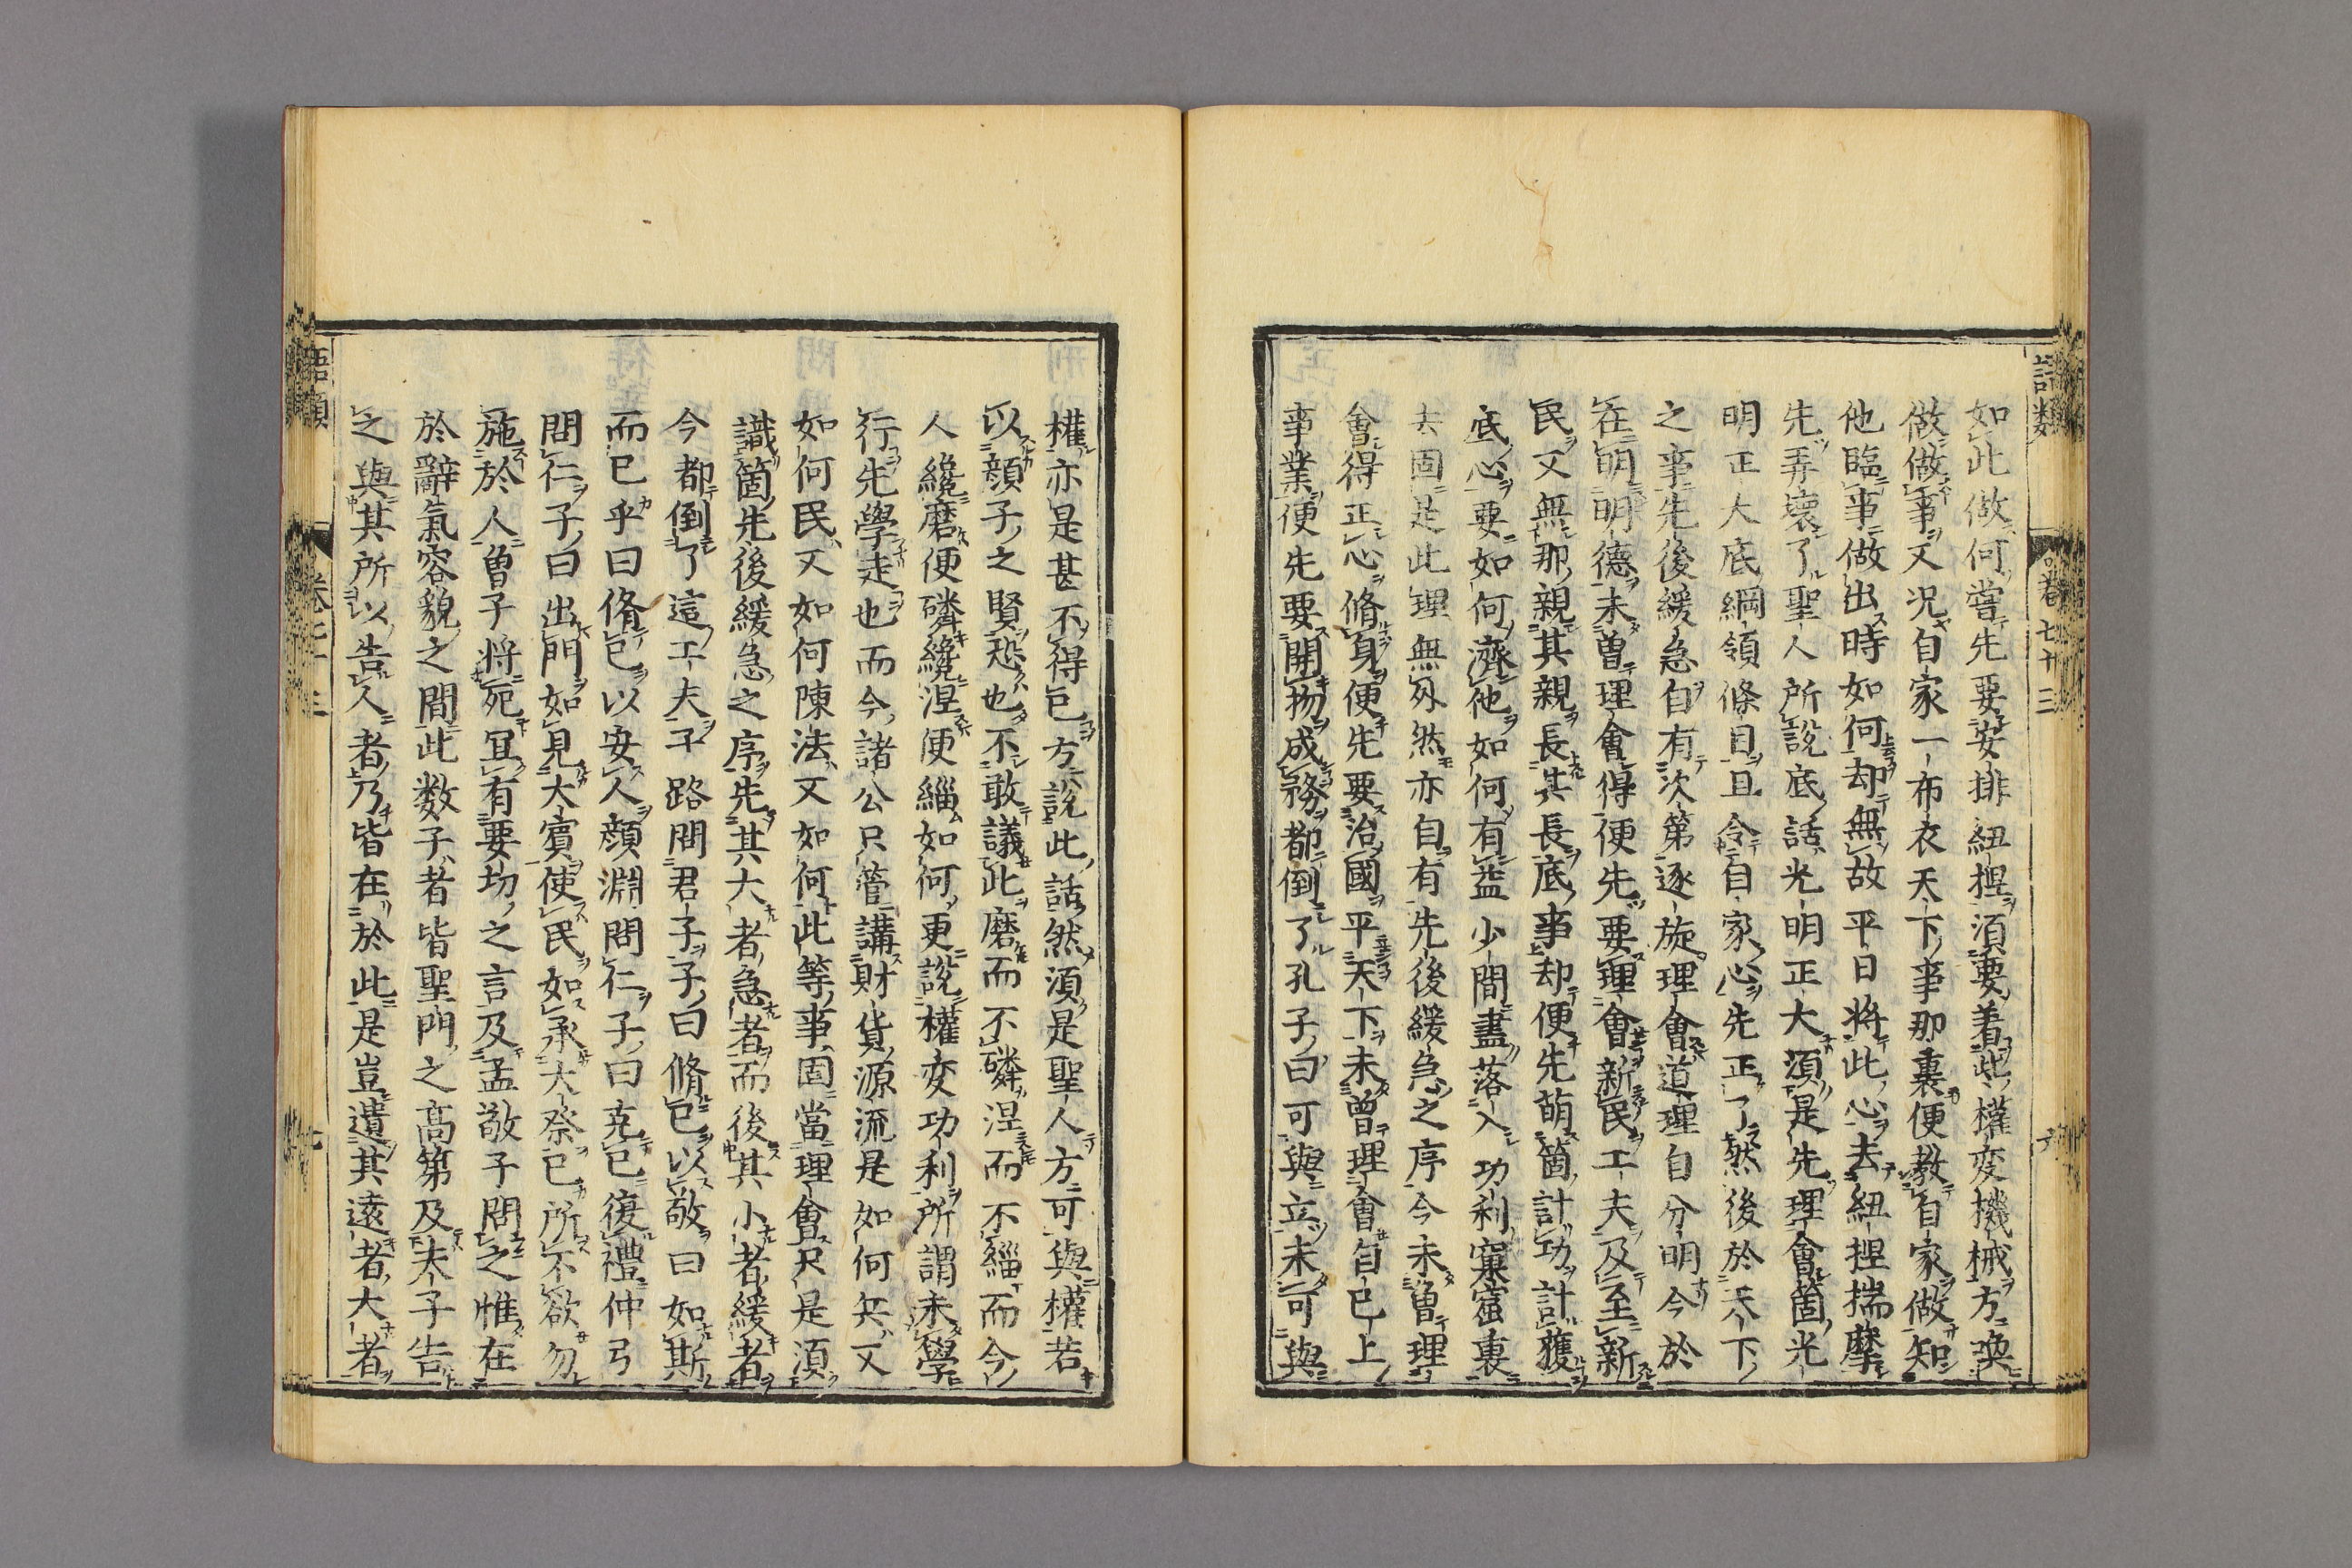 語類
卷七十三
六
如此做何嘗先要安排紐捏須要着此權変機械方喚
做做事又况自家一布衣天下事那裏便教自家做知
他臨事做出時如何却無故平日將此心去紐捏揣摩
先弄壞了聖人所說底話光明正大須是先理會箇光
明正大底綱領條目且令自家心先正了然後於天下
之事先後緩急自有次第逐旋理會道理自分明今於
在明明德未曽理會得便先要理會新民工夫及至新
民又無那親其親長其長底事却便先萌箇計功計獲
底心要如何濟他如何有益少間盡落入功利窠窟裏
去固是此理無外然亦自有先後緩急之序今未曽理
會得正心脩身便先要治國平天下未曽理會自己上
事業便先要開物成務都倒了孔子曰可與立未可與
權亦是甚不得已方說此話然須是聖人方可與權若
以顔子之賢恐也不敢議此磨而不磷涅而不緇而今
人纔磨便磷纔涅便緇如何更說權変功利所謂未學
行先學走也而今諸公只管講財貨源流是如何兵又
如何民又如何陳法又如何此等事固當理會只是須
識箇先後緩急之序先其大者急者而後其小者緩者
今都倒了這工夫子路問君子子曰脩已以敬曰如斯
而已乎曰脩已以安人顔淵問仁子曰克已復禮仲弓
問仁子曰出門如見大賓使民如承大祭已所不欲勿
施於人曽子將死冝有要切之言及孟敬子問之惟在
於辭氣容貌之間此数子者皆聖門之高第及夫子告
之與其所以告人者乃皆在於此是豈遺其遠者大者
語類
卷七十三
七